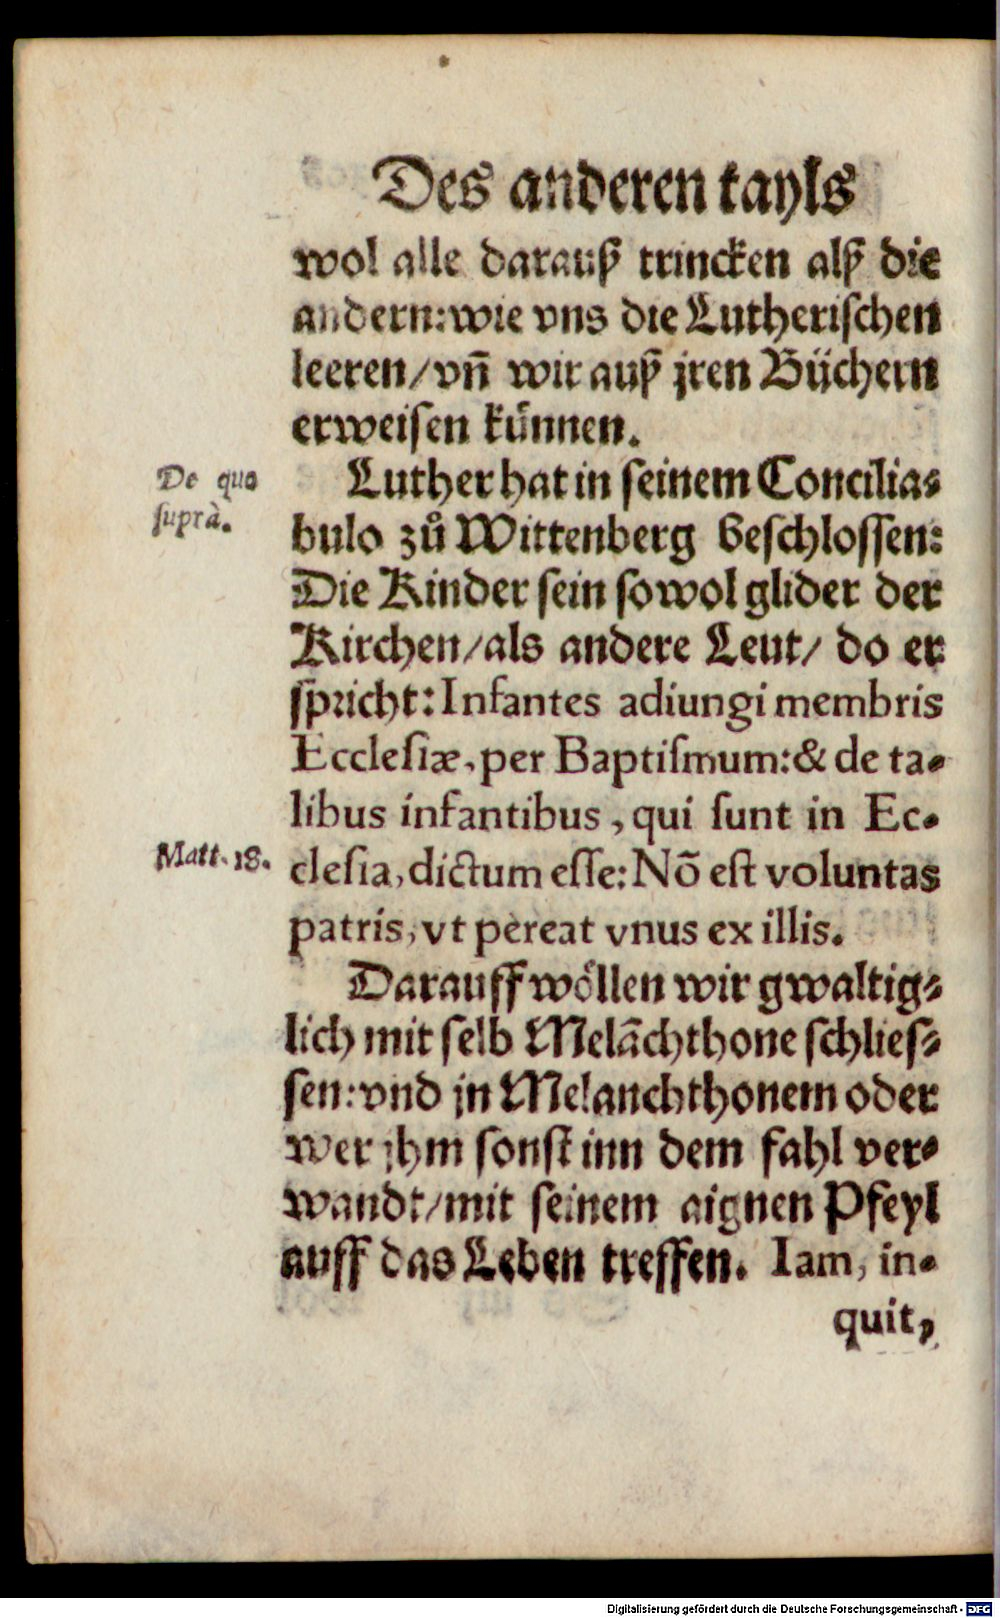 Des anderen tayls
wol alle darauß trincken alß die
andern: wie vns die Lutherischen
leeren/ vn̄ wir auß jren Büchern
erweisen künnen.
De quo
suprà.
Luther hat in seinem Concilia-
bulo zů Wittenberg beschlossen:
Die Kinder sein sowol glider der
Kirchen/ als andere Leut/ do er
spricht: Infantes adiungi membris
Ecclesiæ, per Baptismum: & de ta-
libus infantibus, qui sunt in Ec-
Matt. 18.
clesia, dictum esse: Nō est voluntas
patris, vt pereat vnus ex illis.
Darauff wöllen wir gwaltig-
lich mit selb Melāchthone schlies-
sen: vnd jn Melanchthonem oder
wer jhm sonst inn dem fahl ver-
wandt/ mit seinem aignen Pfeyl
auff das Leben treffen. Iam, in-
quit,
Digitalisierung gefördert durch die Deutsche Forschungsgemeinschaft - DFG